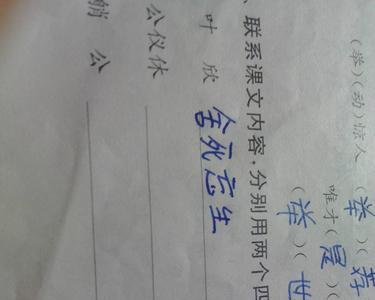 (举)(动)惊人 (举)(荐
唯才(是)(
(举)(世
、联系课文内容，分别用两个四
叶 欣 舍死忘生
公仪休
艄 公